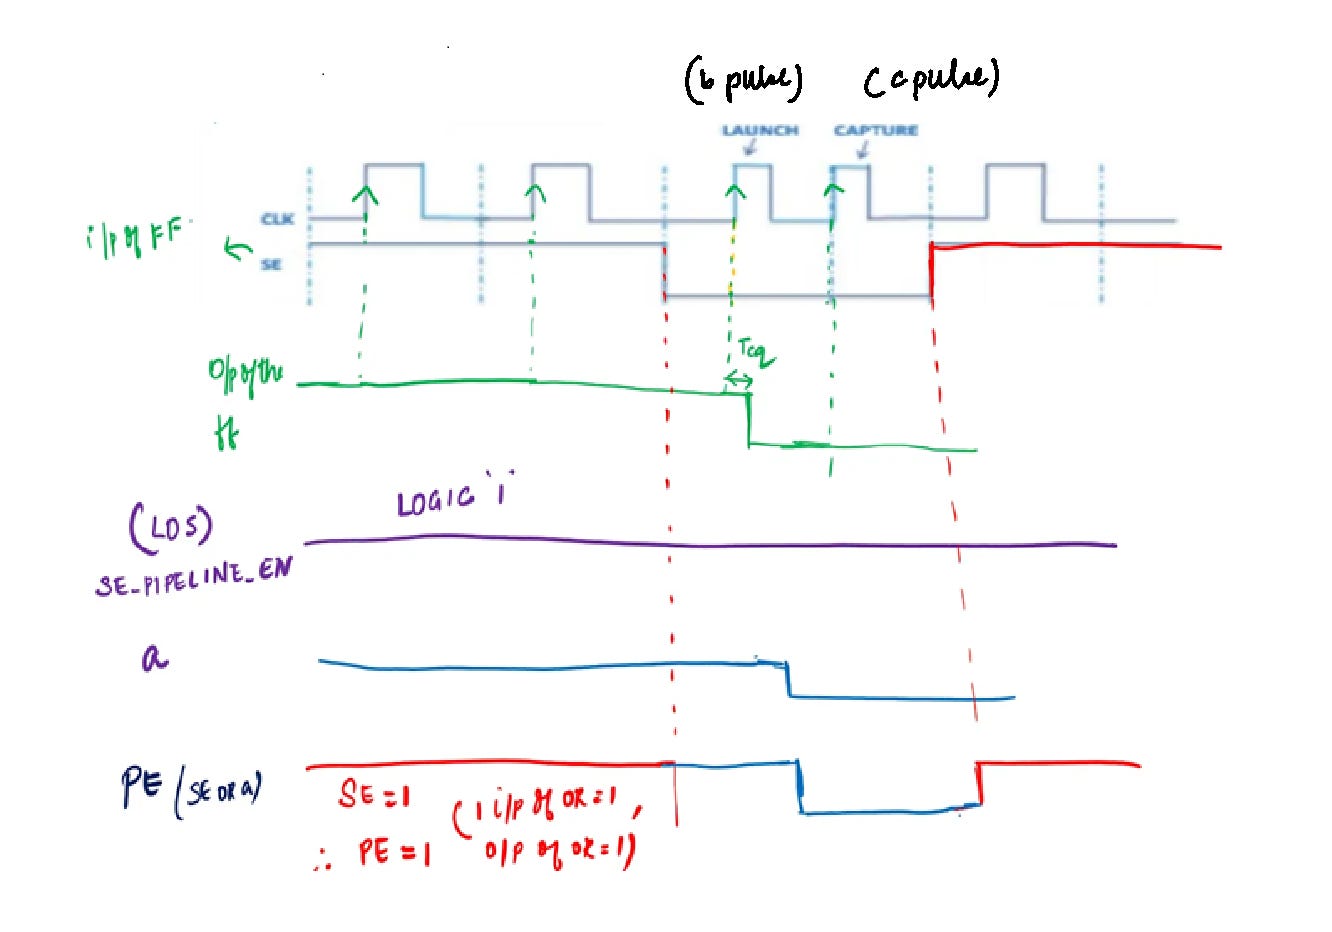 (b pulse) (c pulse)
LAUNCH CAPTURE
i/p of FF
CLK
SE
Tcq
O/p of the
ff
LOGIC '1'
(LOS)
SE_PIPELINE_EN
a
PE (SE OR a)
SE = 1 (1 i/p of OR = 1,
∴ PE = 1 o/p of OR = 1)